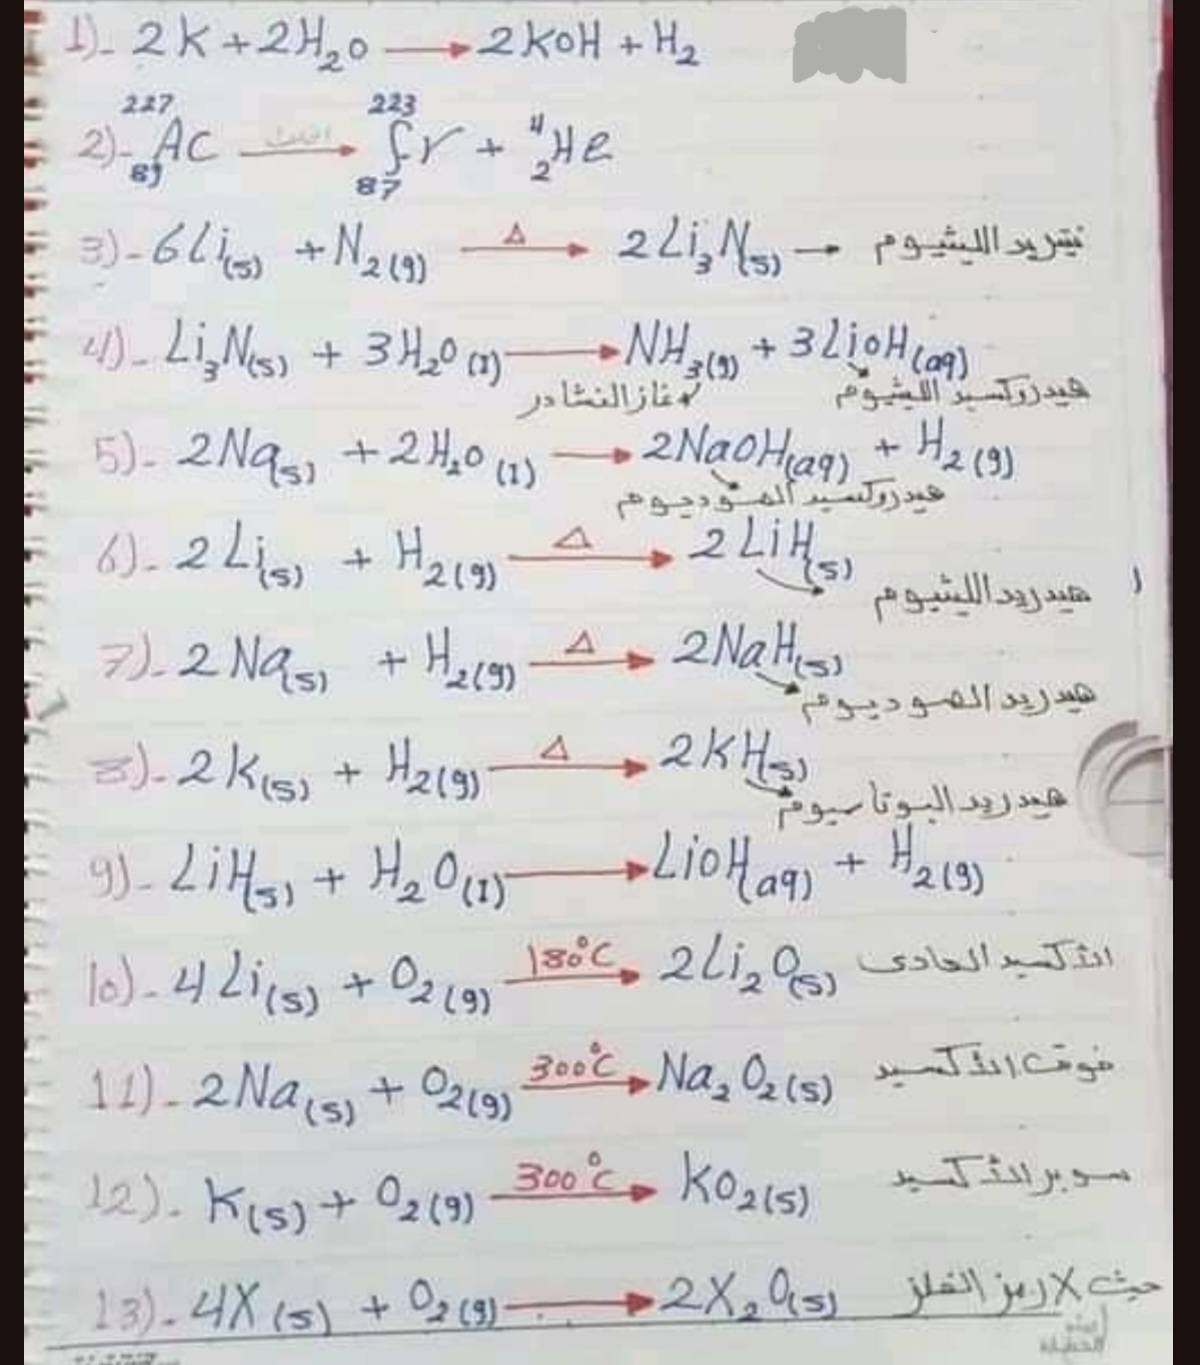 1)- 2K + 2H₂O → 2KOH + H₂
2)- ²²⁷₈₉Ac → ²²³₈₇fr + ⁴₂He
3)- 6Li(s) + N₂(g) —Δ→ 2Li₃N(s) → نيتريد الليثيوم
4)- Li₃N(s) + 3H₂O(l) → NH₃(g) + 3LiOH(aq)
غاز النشادر هيدروكسيد الليثيوم
5)- 2Na(s) + 2H₂O(l) → 2NaOH(aq) + H₂(g)
هيدروكسيد الصوديوم
6)- 2Li(s) + H₂(g) —Δ→ 2LiH(s)
هيدريد الليثيوم
7)- 2Na(s) + H₂(g) —Δ→ 2NaH(s)
هيدريد الصوديوم
8)- 2K(s) + H₂(g) —Δ→ 2KH(s)
هيدريد البوتاسيوم
9)- LiH(s) + H₂O(l) → LiOH(aq) + H₂(g)
10)- 4Li(s) + O₂(g) —180°C→ 2Li₂O(s) الأكسيد العادى
11)- 2Na(s) + O₂(g) —300°C→ Na₂O₂(s) فوق الأكسيد
12)- K(s) + O₂(g) —300°C→ KO₂(s) سوبر الأكسيد
13)- 4X(s) + O₂(g) → 2X₂O(s) حيث X رمز الفلز